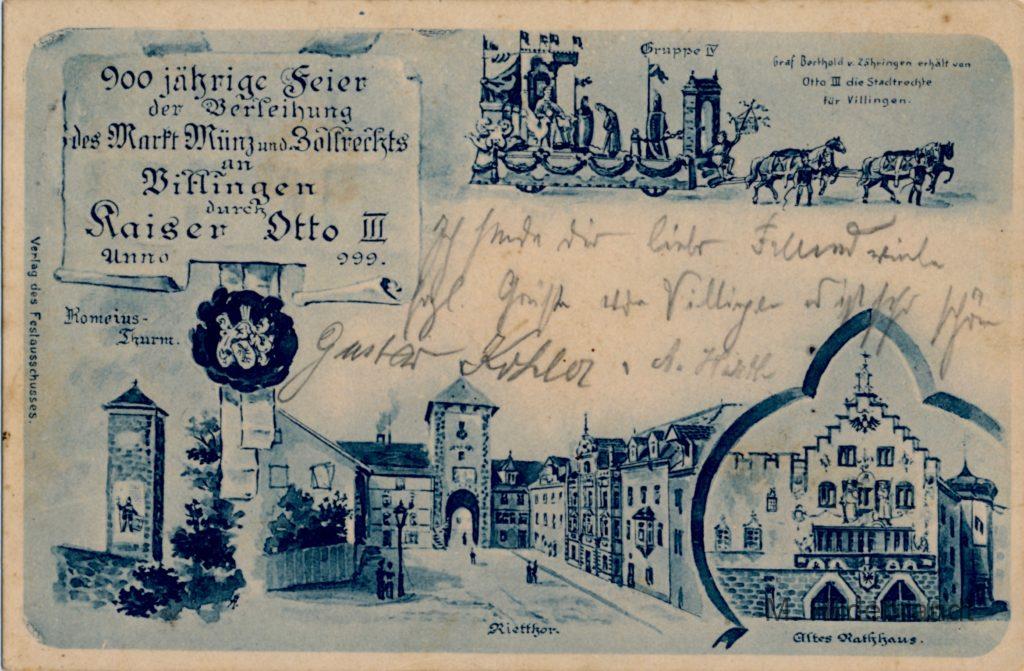 900 jährige Feier
der Verleihung
des Markt Münz und Zollrechts
an
Villingen
durch
Kaiser Otto III
Anno 999.
Gruppe IV
Graf Berthold v. Zähringen erhält von
Otto III die Stadtrechte
für Villingen.
Ich sende dir liebe Freund viele
Grüße von Villingen es ist sehr schön
Gustav Kohler
Verlag des Festausschusses.
Romeius-
Thurm.
Rietthor.
Altes Rathhaus.